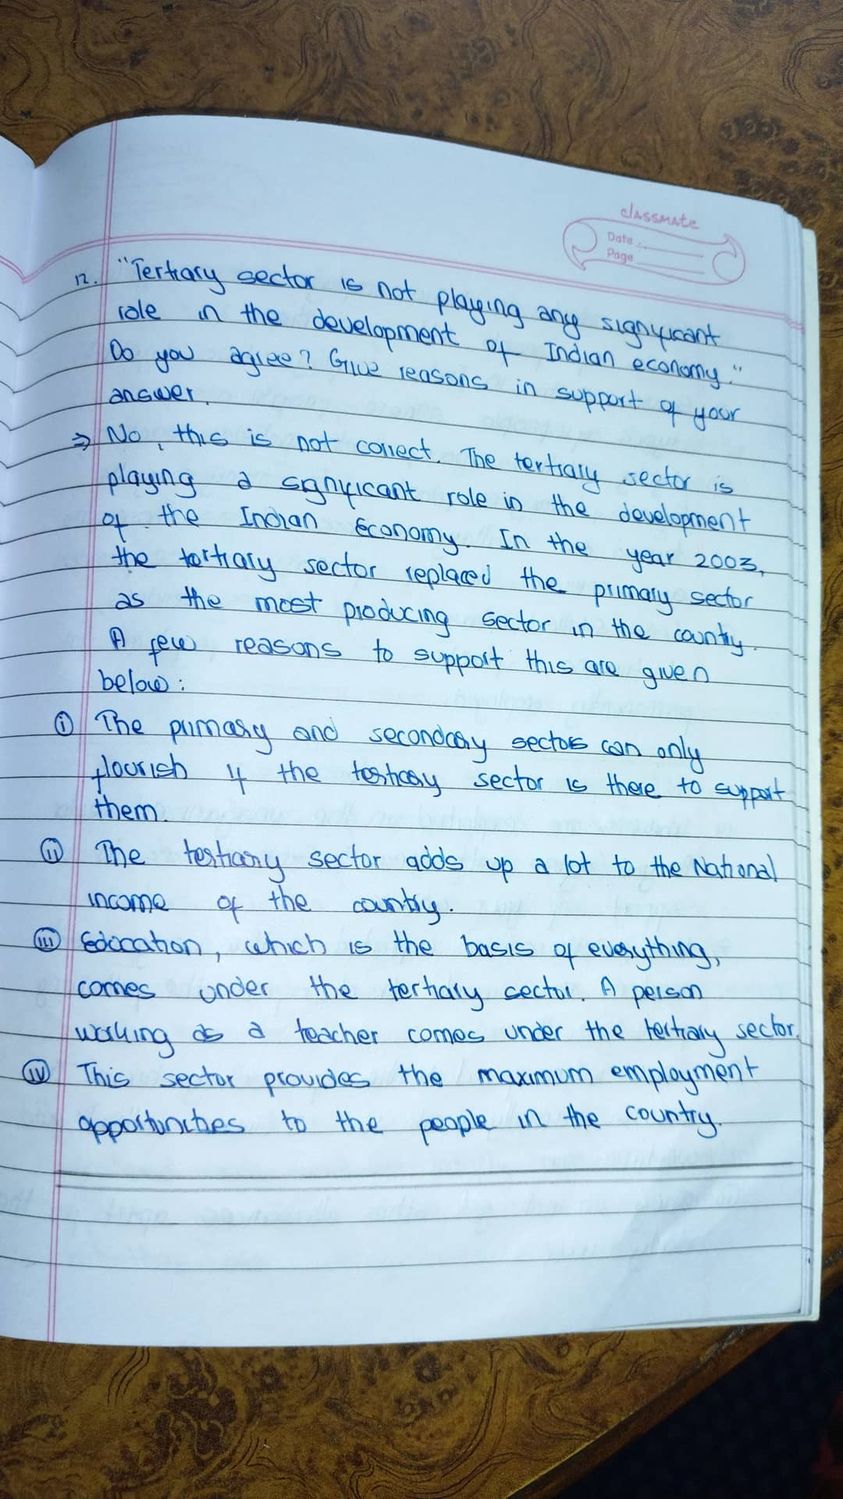 classmate
Date
Page
12. "Tertiary sector is not playing any significant
role in the development of Indian economy."
Do you agree? Give reasons in support of your
answer.
⇒ No, this is not correct. The tertiary sector is
playing a significant role in the development
of the Indian Economy. In the year 2003,
the tertiary sector replaced the primary sector
as the most producing sector in the country.
A few reasons to support this are given
below:
(i) The primary and secondary sectors can only
flourish if the tertiary sector is there to support
them.
(ii) The tertiary sector adds up a lot to the National
income of the country.
(iii) Education, which is the basis of everything,
comes under the tertiary sector. A person
working as a teacher comes under the tertiary sector.
(iv) This sector provides the maximum employment
opportunities to the people in the country.